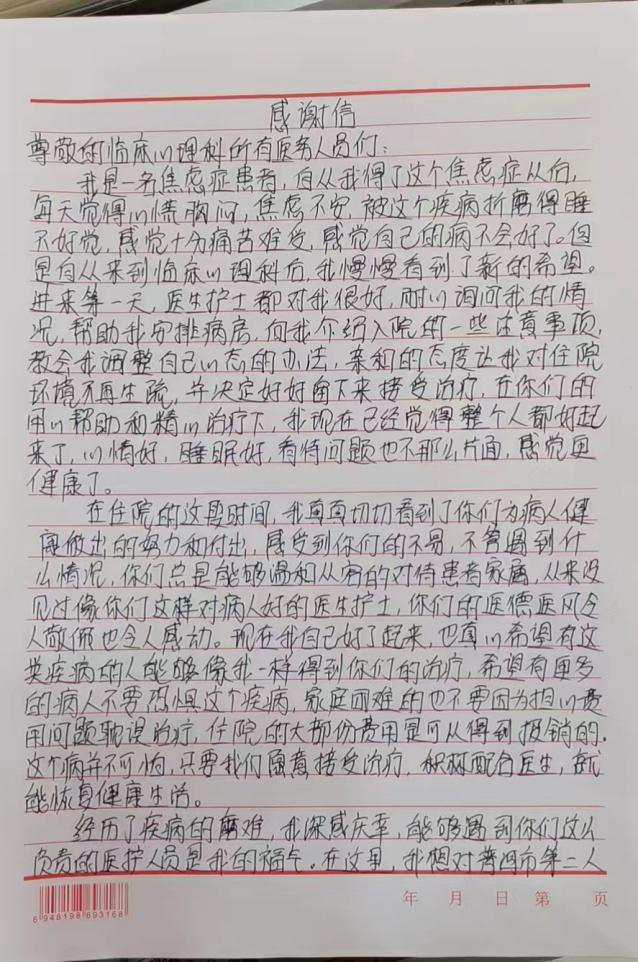 感谢信
尊敬的临床心理科所有医务人员们：
我是一名焦虑症患者，自从我得了这个焦虑症以后，
每天觉得心慌胸闷，焦虑不安，被这个疾病折磨得睡
不好觉，感觉十分痛苦难受，感觉自己的病不会好了。但
是自从来到临床心理科后，我慢慢看到了新的希望。
进来第一天，医生护士都对我很好，耐心询问我的情
况，帮助我安排病房，向我介绍入院的一些注意事项，
教会我调整自己心态的办法，亲和的态度让我对住院
环境不再生疏，并决定好好留下来接受治疗，在你们的
用心帮助和精心治疗下，我现在已经觉得整个人都好起
来了，心情好，睡眠好，看待问题也不那么片面，感觉更
健康了。
在住院的这段时间，我真真切切看到了你们为病人健
康做出的努力和付出，感受到你们的不易，不管遇到什
么情况，你们总是能够温和从容的对待患者家属，从来没
见过像你们这样对病人好的医生护士，你们的医德医风令
人敬佩也令人感动。现在我自己好了起来，也真心希望有这
类疾病的人能够像我一样得到你们的治疗，希望有更多
的病人不要恐惧这个疾病，家庭困难的也不要因为担心费
用问题耽误治疗，住院的大部份费用是可以得到报销的.
这个病并不可怕，只要我们愿意接受治疗，积极配合医生，就
能恢复健康生活。
经历了疾病的磨难，我深感庆幸，能够遇到你们这么
负责的医护人员是我的福气。在这里，我想对普洱市第二人
6 948198 693168
年 月 日 第 页